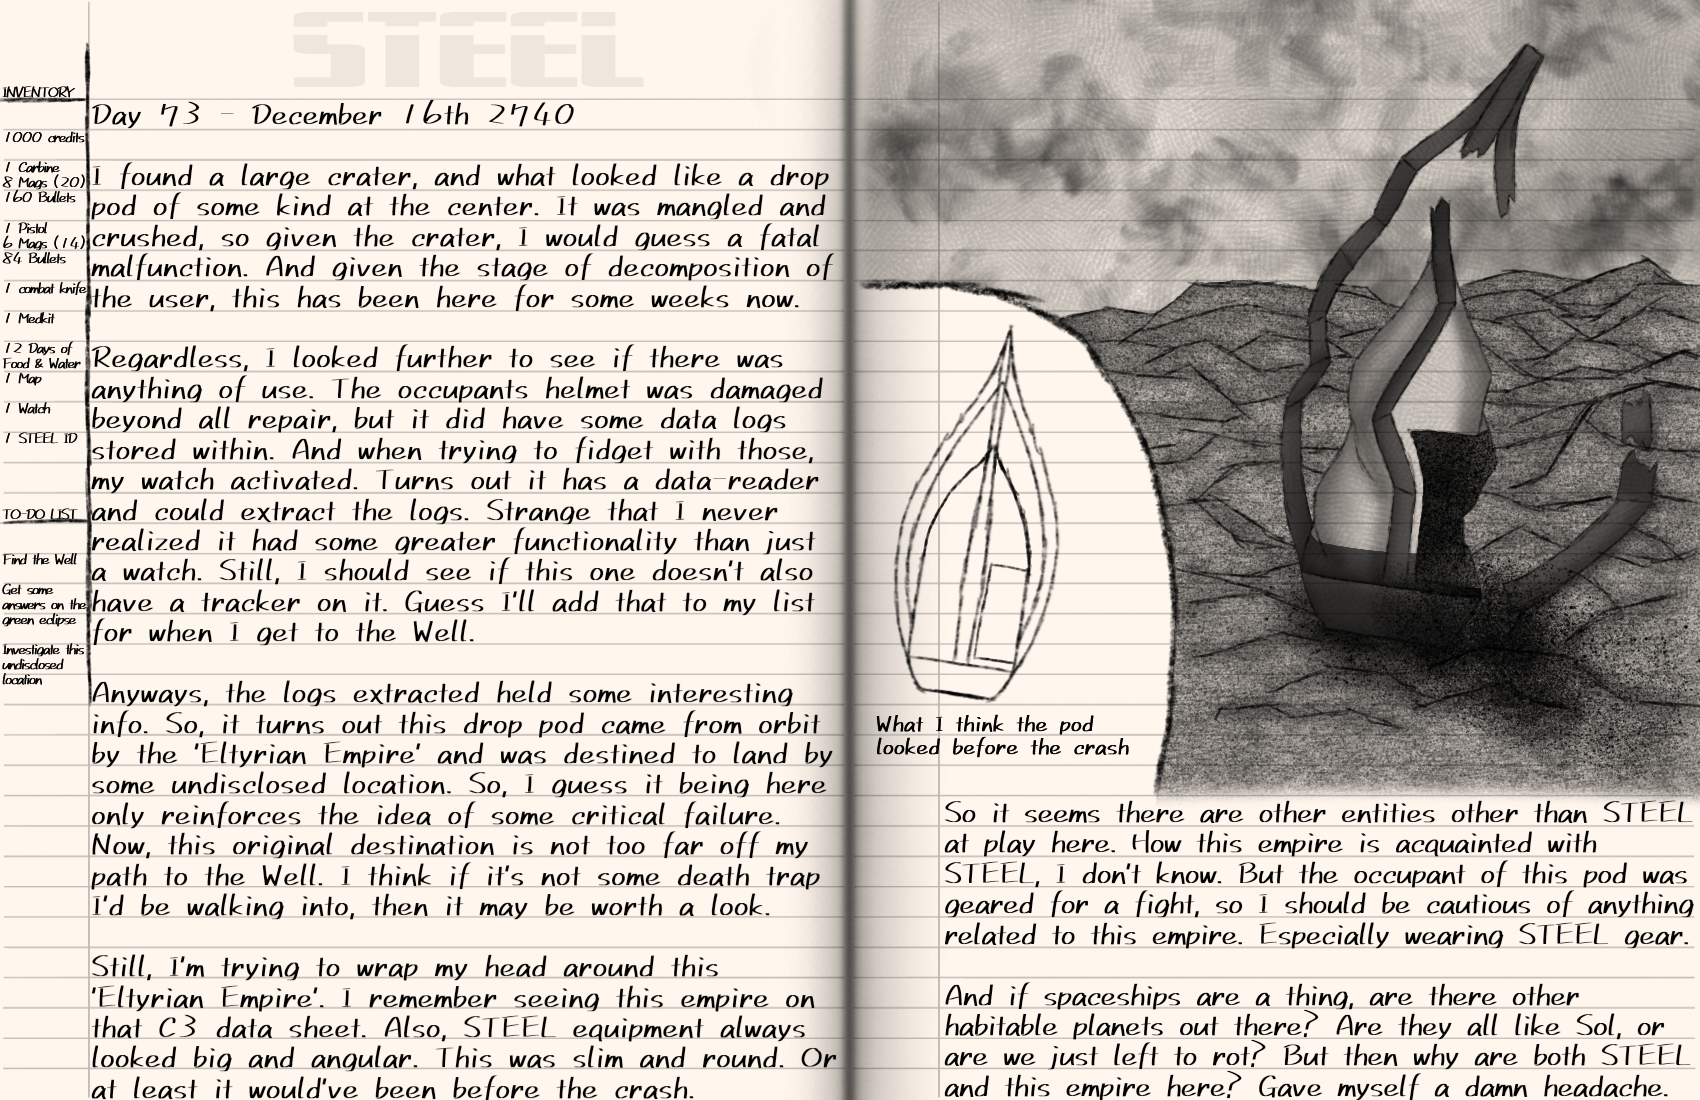 STEEL
INVENTORY
1000 credits
1 Carbine
8 Mags (20)
160 Bullets
1 Pistol
6 Mags (14)
84 Bullets
1 combat knife
1 Medkit
12 Days of
Food & Water
1 Map
1 Watch
1 STEEL ID
TO-DO LIST
Find the Well
Get some
answers on the
green eclipse
Investigate this
undisclosed
location
Day 73 - December 16th 2740
I found a large crater, and what looked like a drop
pod of some kind at the center. It was mangled and
crushed, so given the crater, I would guess a fatal
malfunction. And given the stage of decomposition of
the user, this has been here for some weeks now.
Regardless, I looked further to see if there was
anything of use. The occupants helmet was damaged
beyond all repair, but it did have some data logs
stored within. And when trying to fidget with those,
my watch activated. Turns out it has a data-reader
and could extract the logs. Strange that I never
realized it had some greater functionality than just
a watch. Still, I should see if this one doesn't also
have a tracker on it. Guess I'll add that to my list
for when I get to the Well.
Anyways, the logs extracted held some interesting
info. So, it turns out this drop pod came from orbit
by the 'Eltyrian Empire' and was destined to land by
some undisclosed location. So, I guess it being here
only reinforces the idea of some critical failure.
Now, this original destination is not too far off my
path to the Well. I think if it's not some death trap
I'd be walking into, then it may be worth a look.
Still, I'm trying to wrap my head around this
'Eltyrian Empire'. I remember seeing this empire on
that C3 data sheet. Also, STEEL equipment always
looked big and angular. This was slim and round. Or
at least it would've been before the crash.
What I think the pod
looked before the crash
So it seems there are other entities other than STEEL
at play here. How this empire is acquainted with
STEEL, I don't know. But the occupant of this pod was
geared for a fight, so I should be cautious of anything
related to this empire. Especially wearing STEEL gear.
And if spaceships are a thing, are there other
habitable planets out there? Are they all like Sol, or
are we just left to rot? But then why are both STEEL
and this empire here? Gave myself a damn headache.